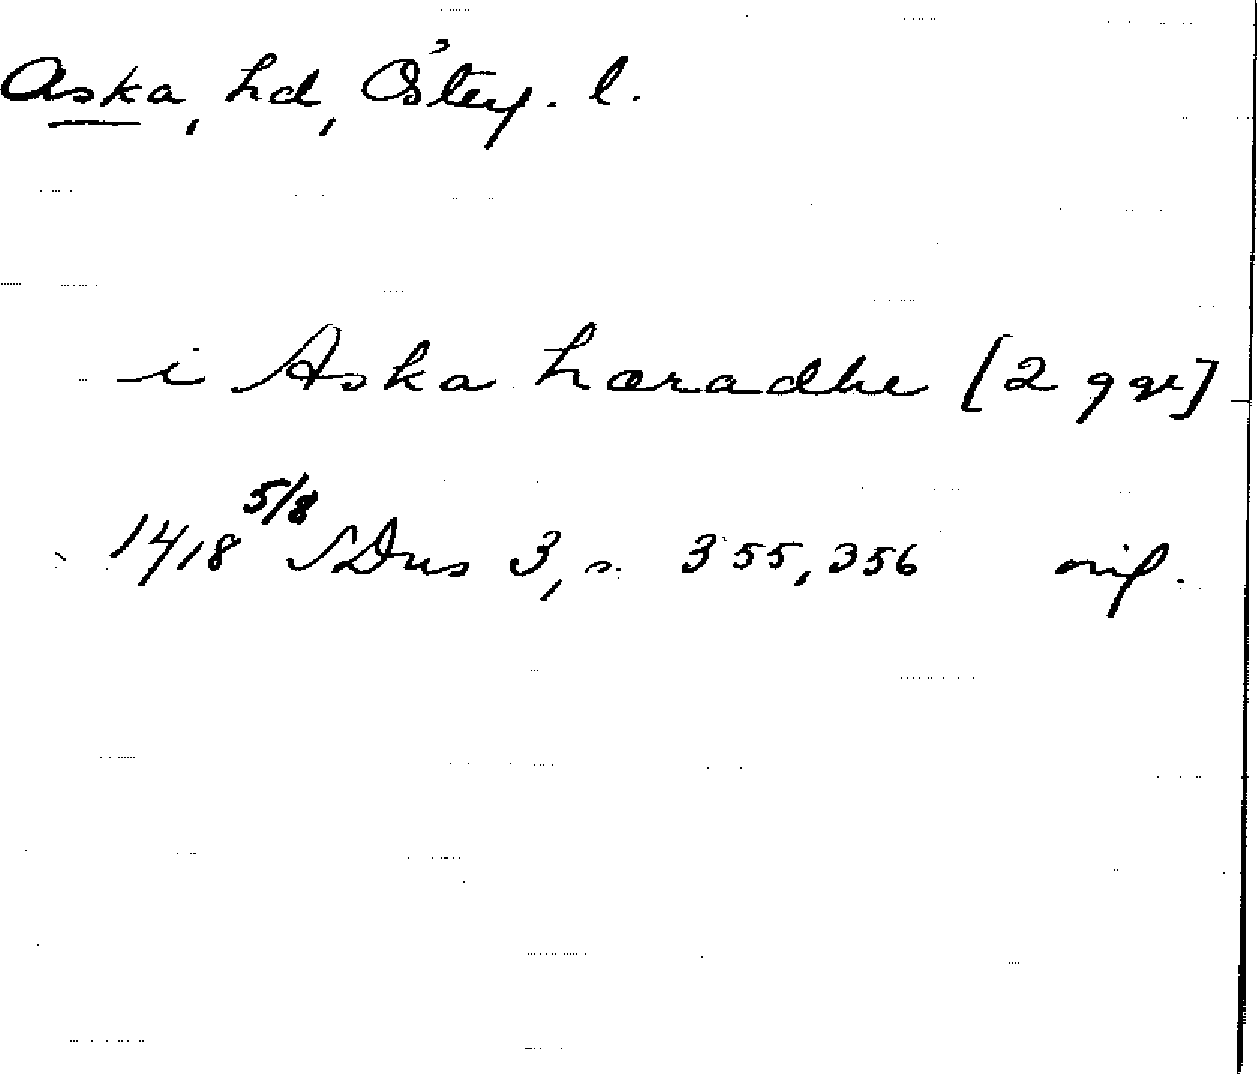 Aska, hd, Österg. l.
i Aska hæradhe [2 ggr]
1418 5/8 SDns 3, s. 355, 356 orig.